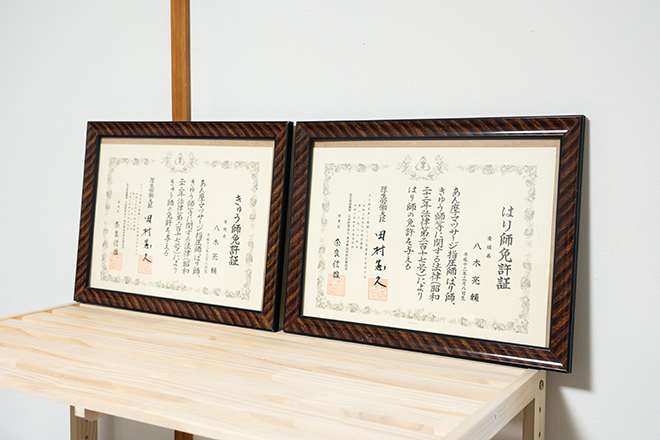 きゅう師免許証
八木亮輔
あん摩マツサージ指圧師、はり師、
きゆう師等に関する法律(昭和
二十二年法律第二百十七号)により
きゅう師の免許を与える
厚生労働大臣 田村憲久
奈良信雄
はり師免許証
愛媛県
八木亮輔
あん摩マツサージ指圧師、はり師、
きゆう師等に関する法律(昭和
二十二年法律第二百十七号)により
はり師の免許を与える
厚生労働大臣 田村憲久
奈良信雄